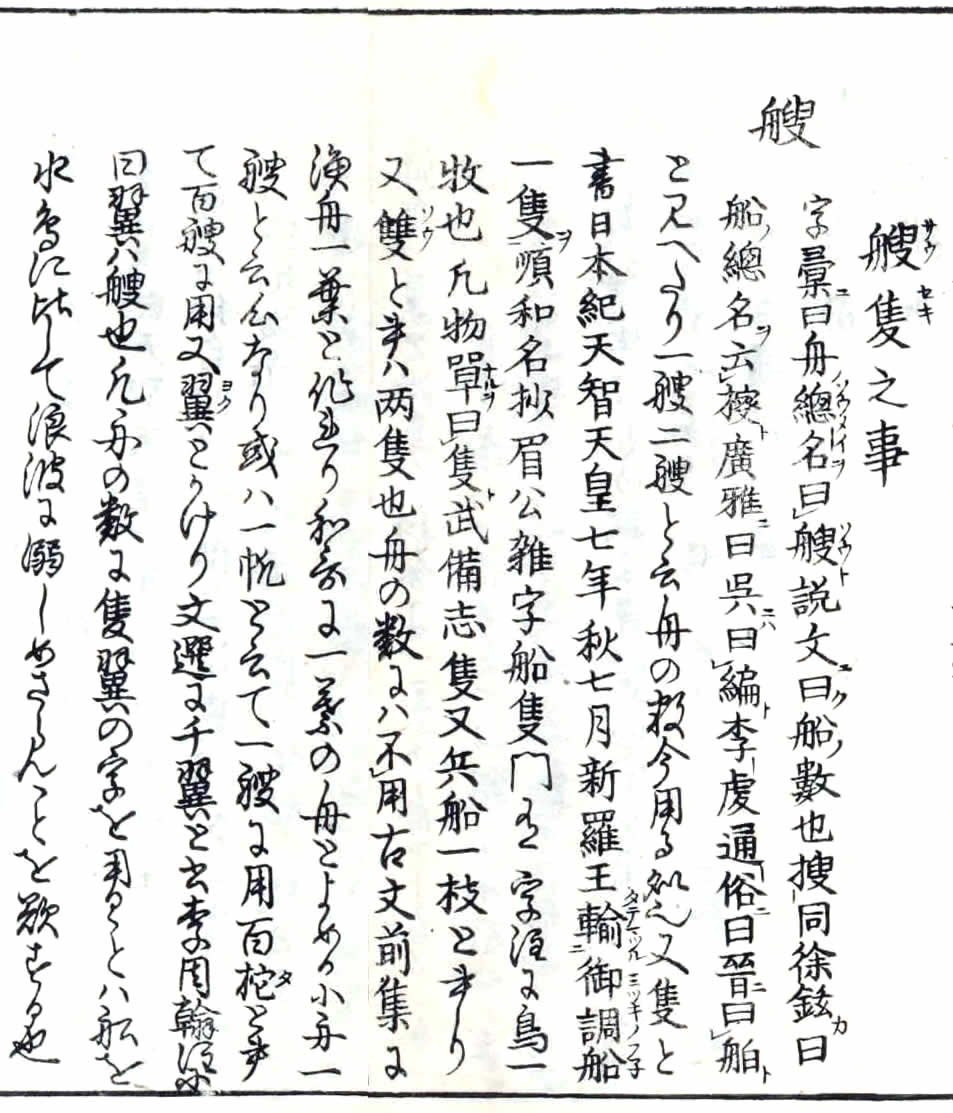 艘隻之事
艘
字彙曰舟總名曰艘説文曰船數也搜同徐鉉曰
船總名云㮴廣雅曰呉曰艑李虔通俗曰晉曰舶
と見へたり一艘二艘と云舟の数今用る処也又隻と
書日本紀天智天皇七年秋七月新羅王輸御調船
一隻順和名抄眉公雑字船隻門に字注に鳥一
牧也凡物單曰隻武備志隻又兵船一枝とあり
又雙とあるハ两隻也舟の数にハ不用古文前集に
漁舟一葉と作れり和哥に一葉の舟とよめる小舟一
艘と云心なり或ハ一帆と云て一艘に用百柁と書
て百艘に用又翼とかけり文選に千翼と云李周翰注に
曰翼ハ艘也凡舟の数に隻翼の字を用ることハ舩を
水鳥に比して浪波に溺しめさらんことを欲する也